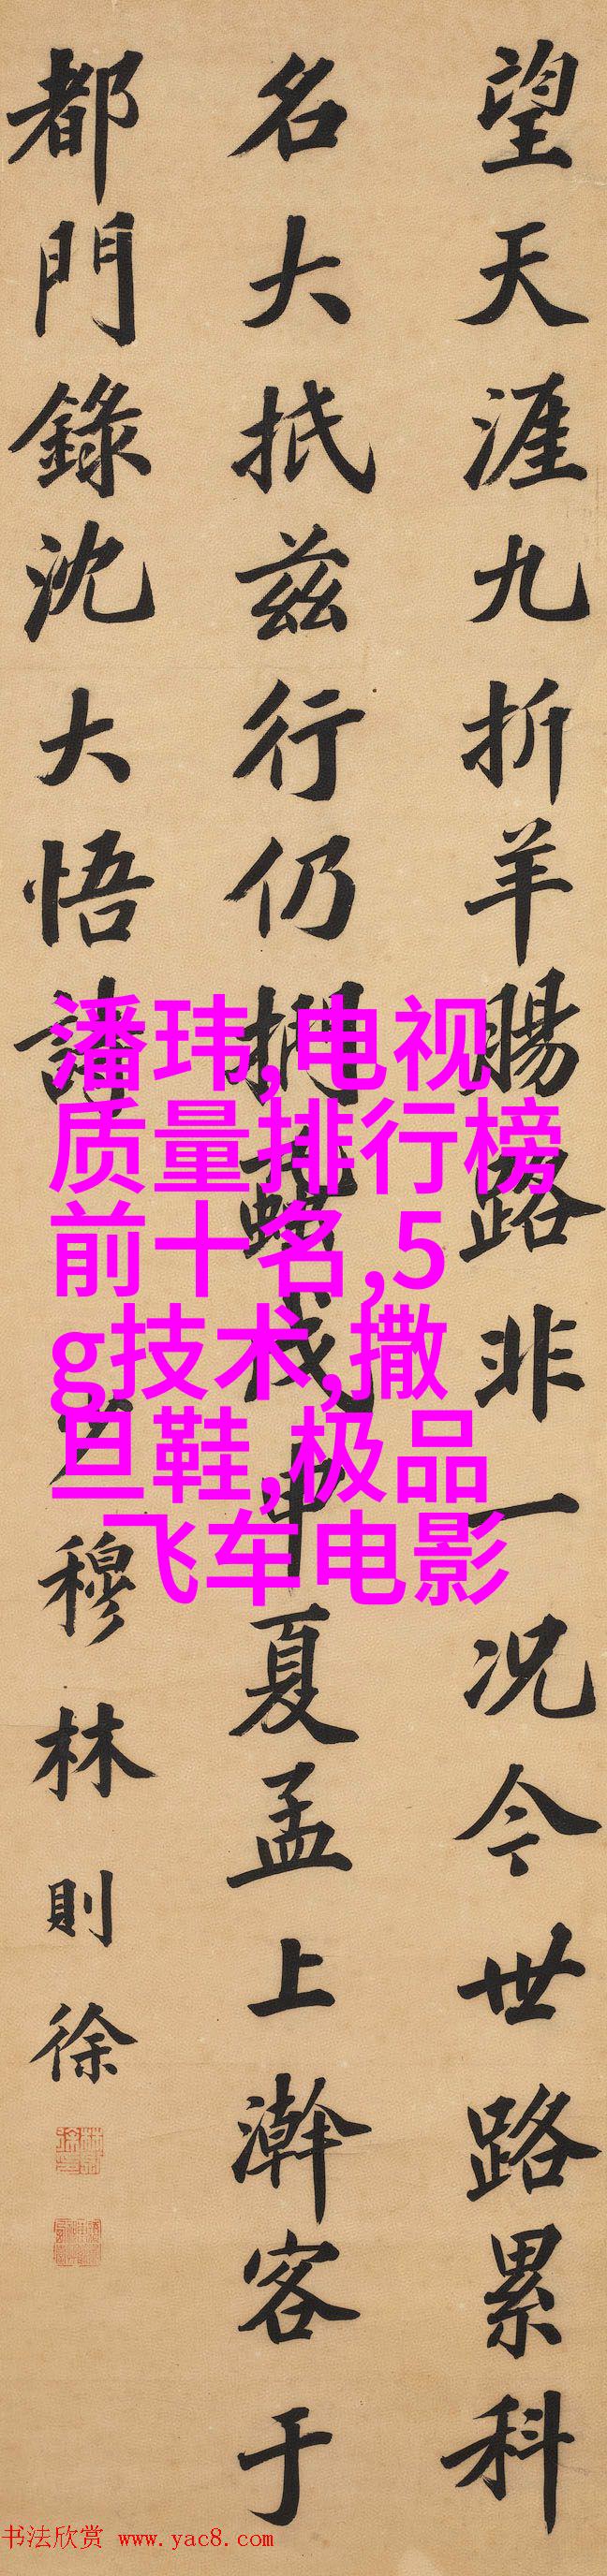 望天涯九折羊腸路非一況今世路累科
名大抵兹行仍
申夏孟上瀚客于
都門錄沈大悟詩
穆林則徐
潘玮,电视
质量排行榜
前十名,5
g技术,撒
旦鞋,极品
飞车电影
书法欣赏 www.yac8.com